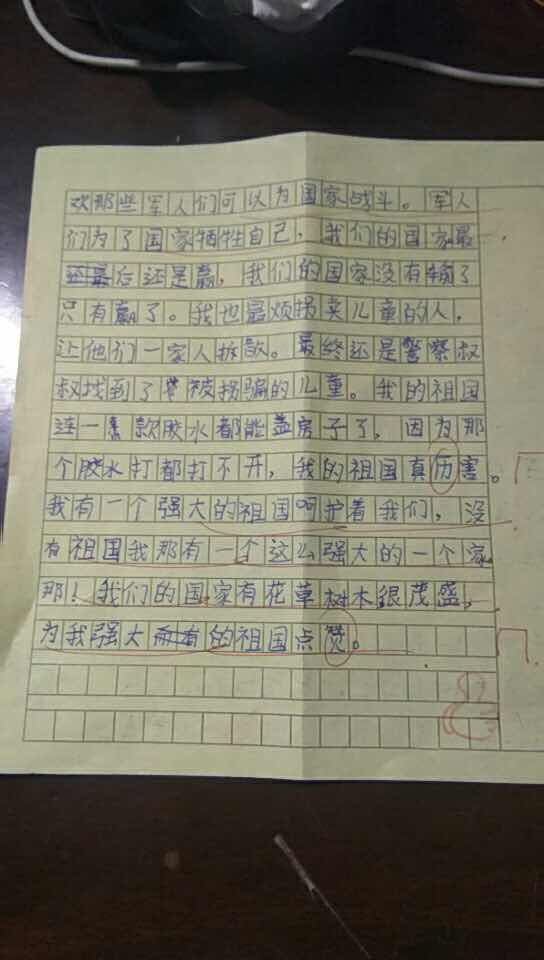 欢那些军人们可以为国家战斗。军人
们为了国家牺牲自己，我们的国家最
后还是赢，我们的国家没有输了
只有赢了。我也最烦拐卖儿童的人，
让他们一家人拆散。最终还是警察叔
叔找到了被拐骗的儿童。我的祖国
连一款胶水都能盖房子了，因为那
个胶水打都打不开，我的祖国真历害。
我有一个强大的祖国呵护着我们，没
有祖国我那有一个这么强大的一个家
那！我们的国家有花草树木很茂盛，
为我强大的祖国点赞。